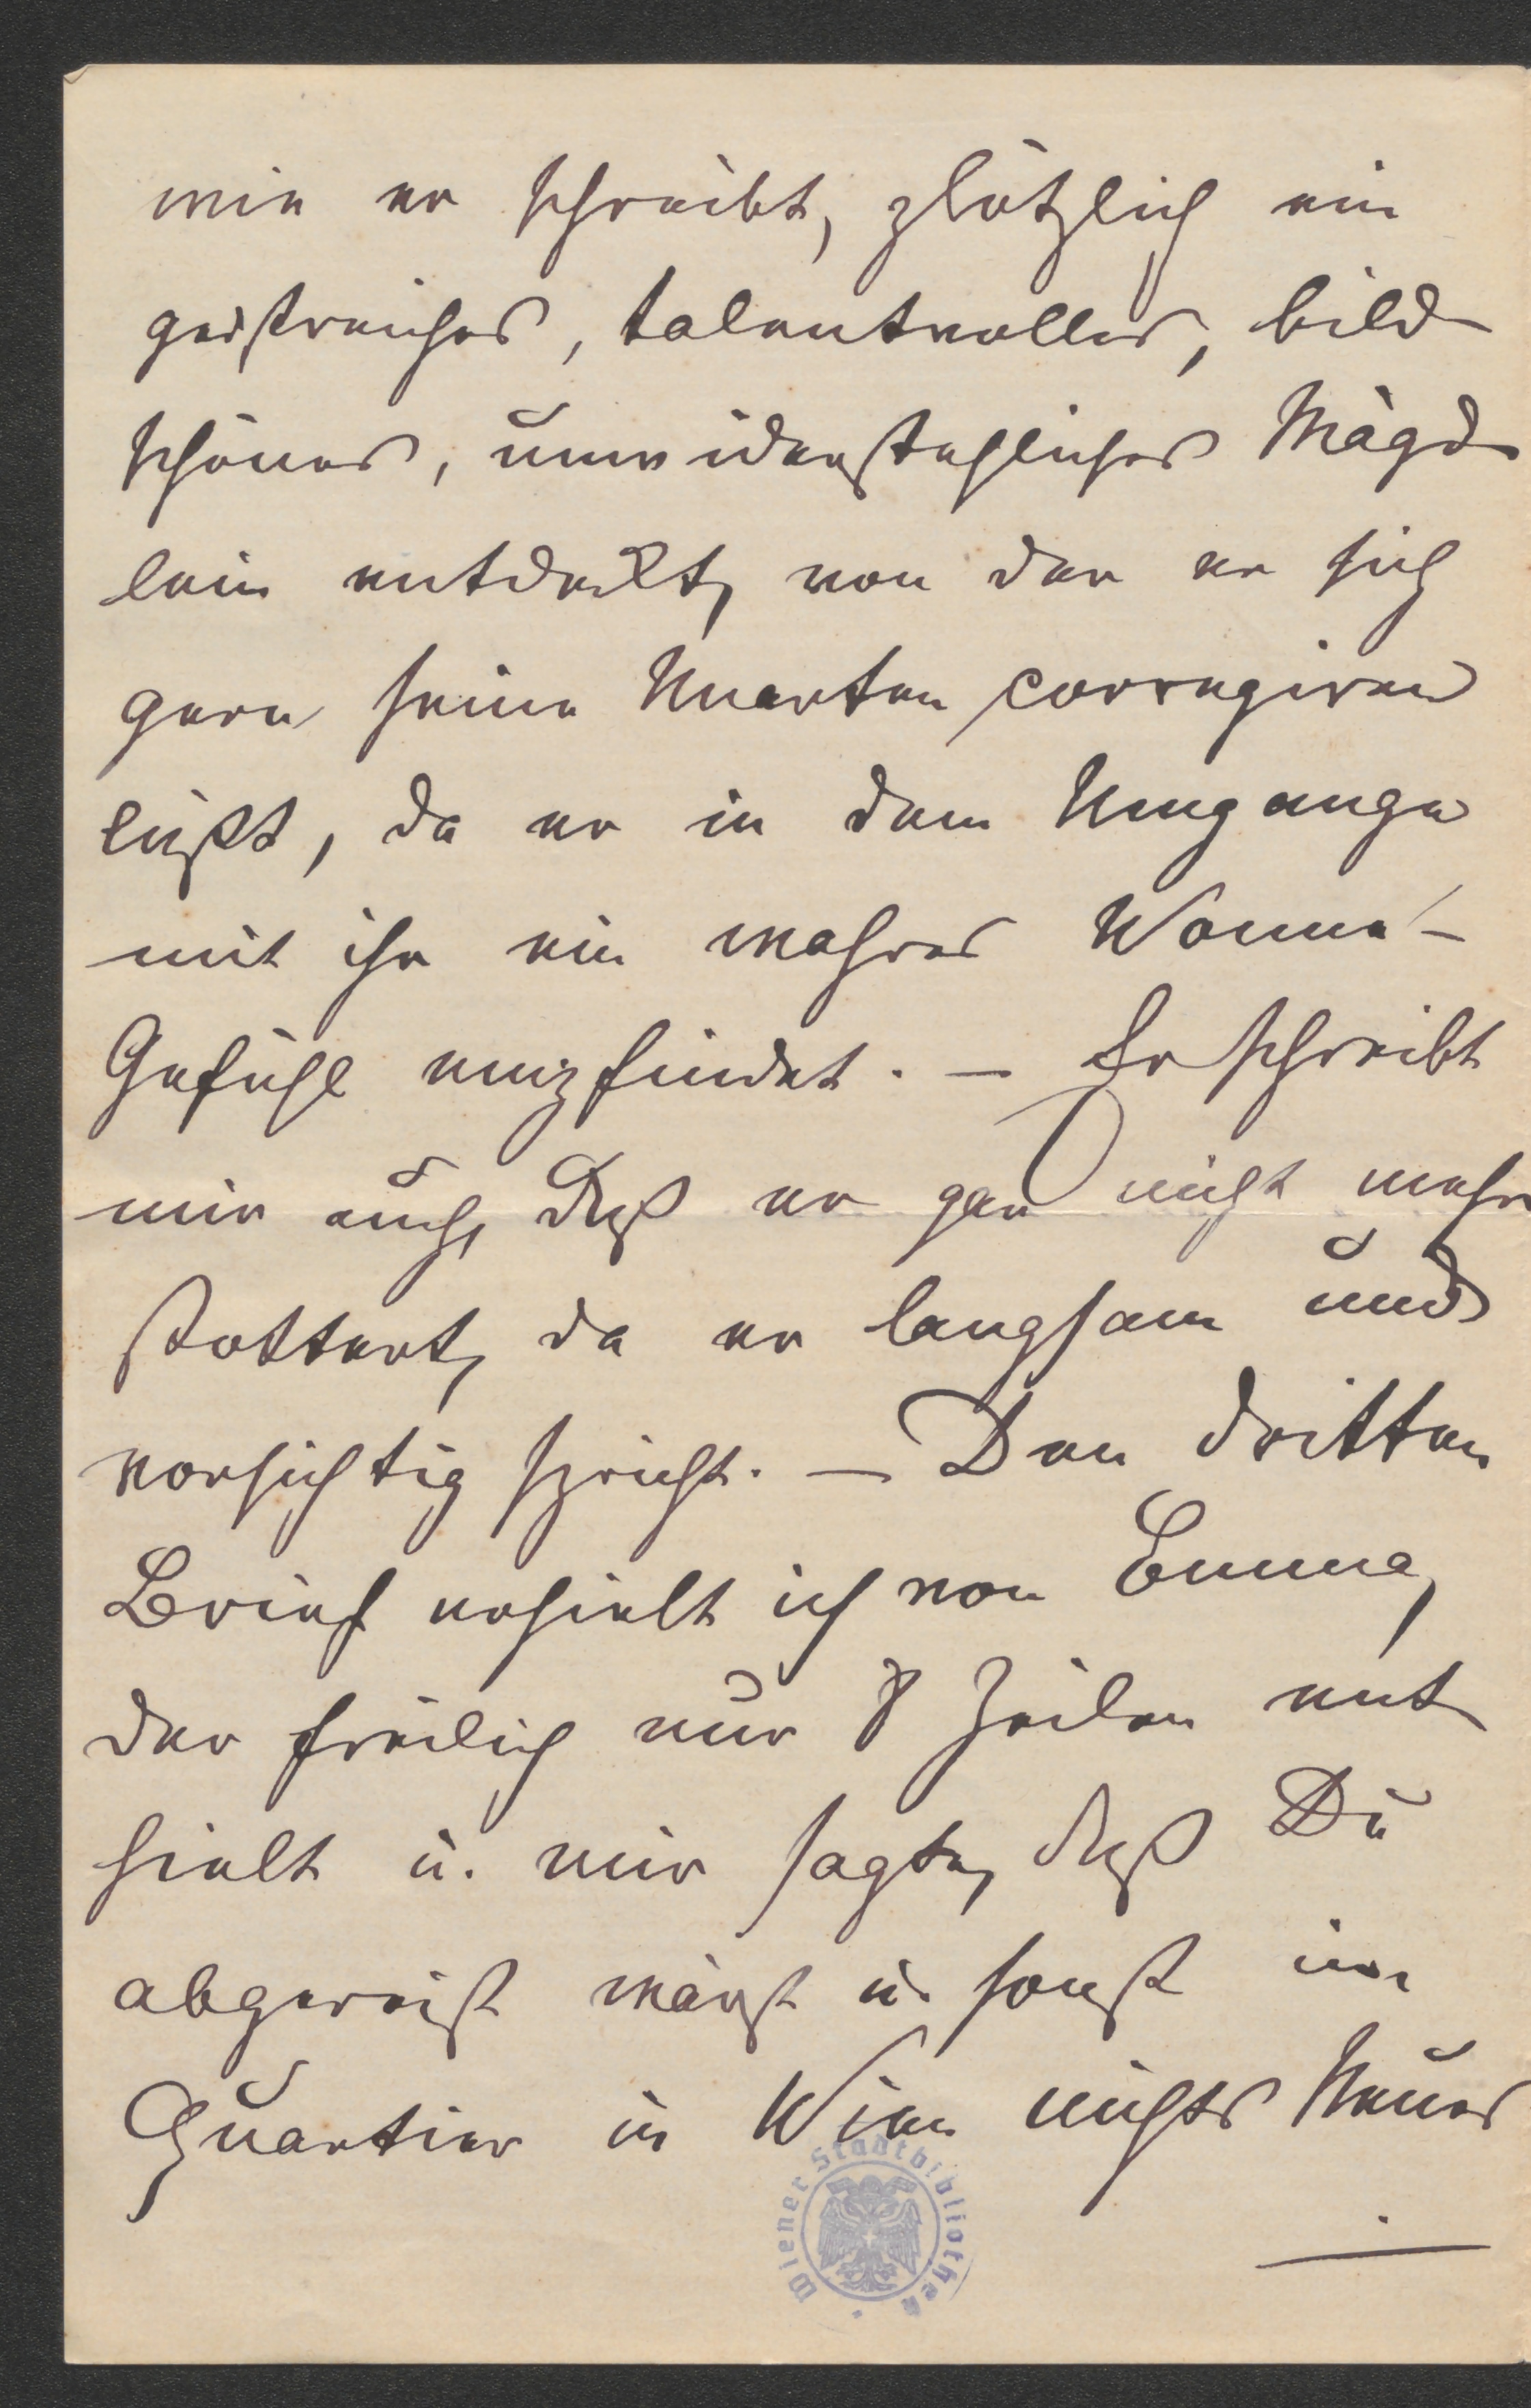 wie er schreibt, plötzlich ein
geistreiches, talentvolles, bild
schönes, unwiderstehliches Mägd
lein entdeckt, von der er sich
gern seine Unarten corregiren
ließt, da er in dem Umgange
mit ihr ein wahres Wonne-
Gefühl empfindet. – Er schreibt
mir auch, daß er gar nicht mehr
stottert, da er langsam und
vorsichtig spricht. – Den dritten
Brief erhielt ich von Emma,
der freilich nur 8 Zeilen ent
hielt u. mir sagte, daß Du
abgereist wärst u. sonst im
Quartier in Wien nichts Neues
.
Wiener Stadtbibliothek